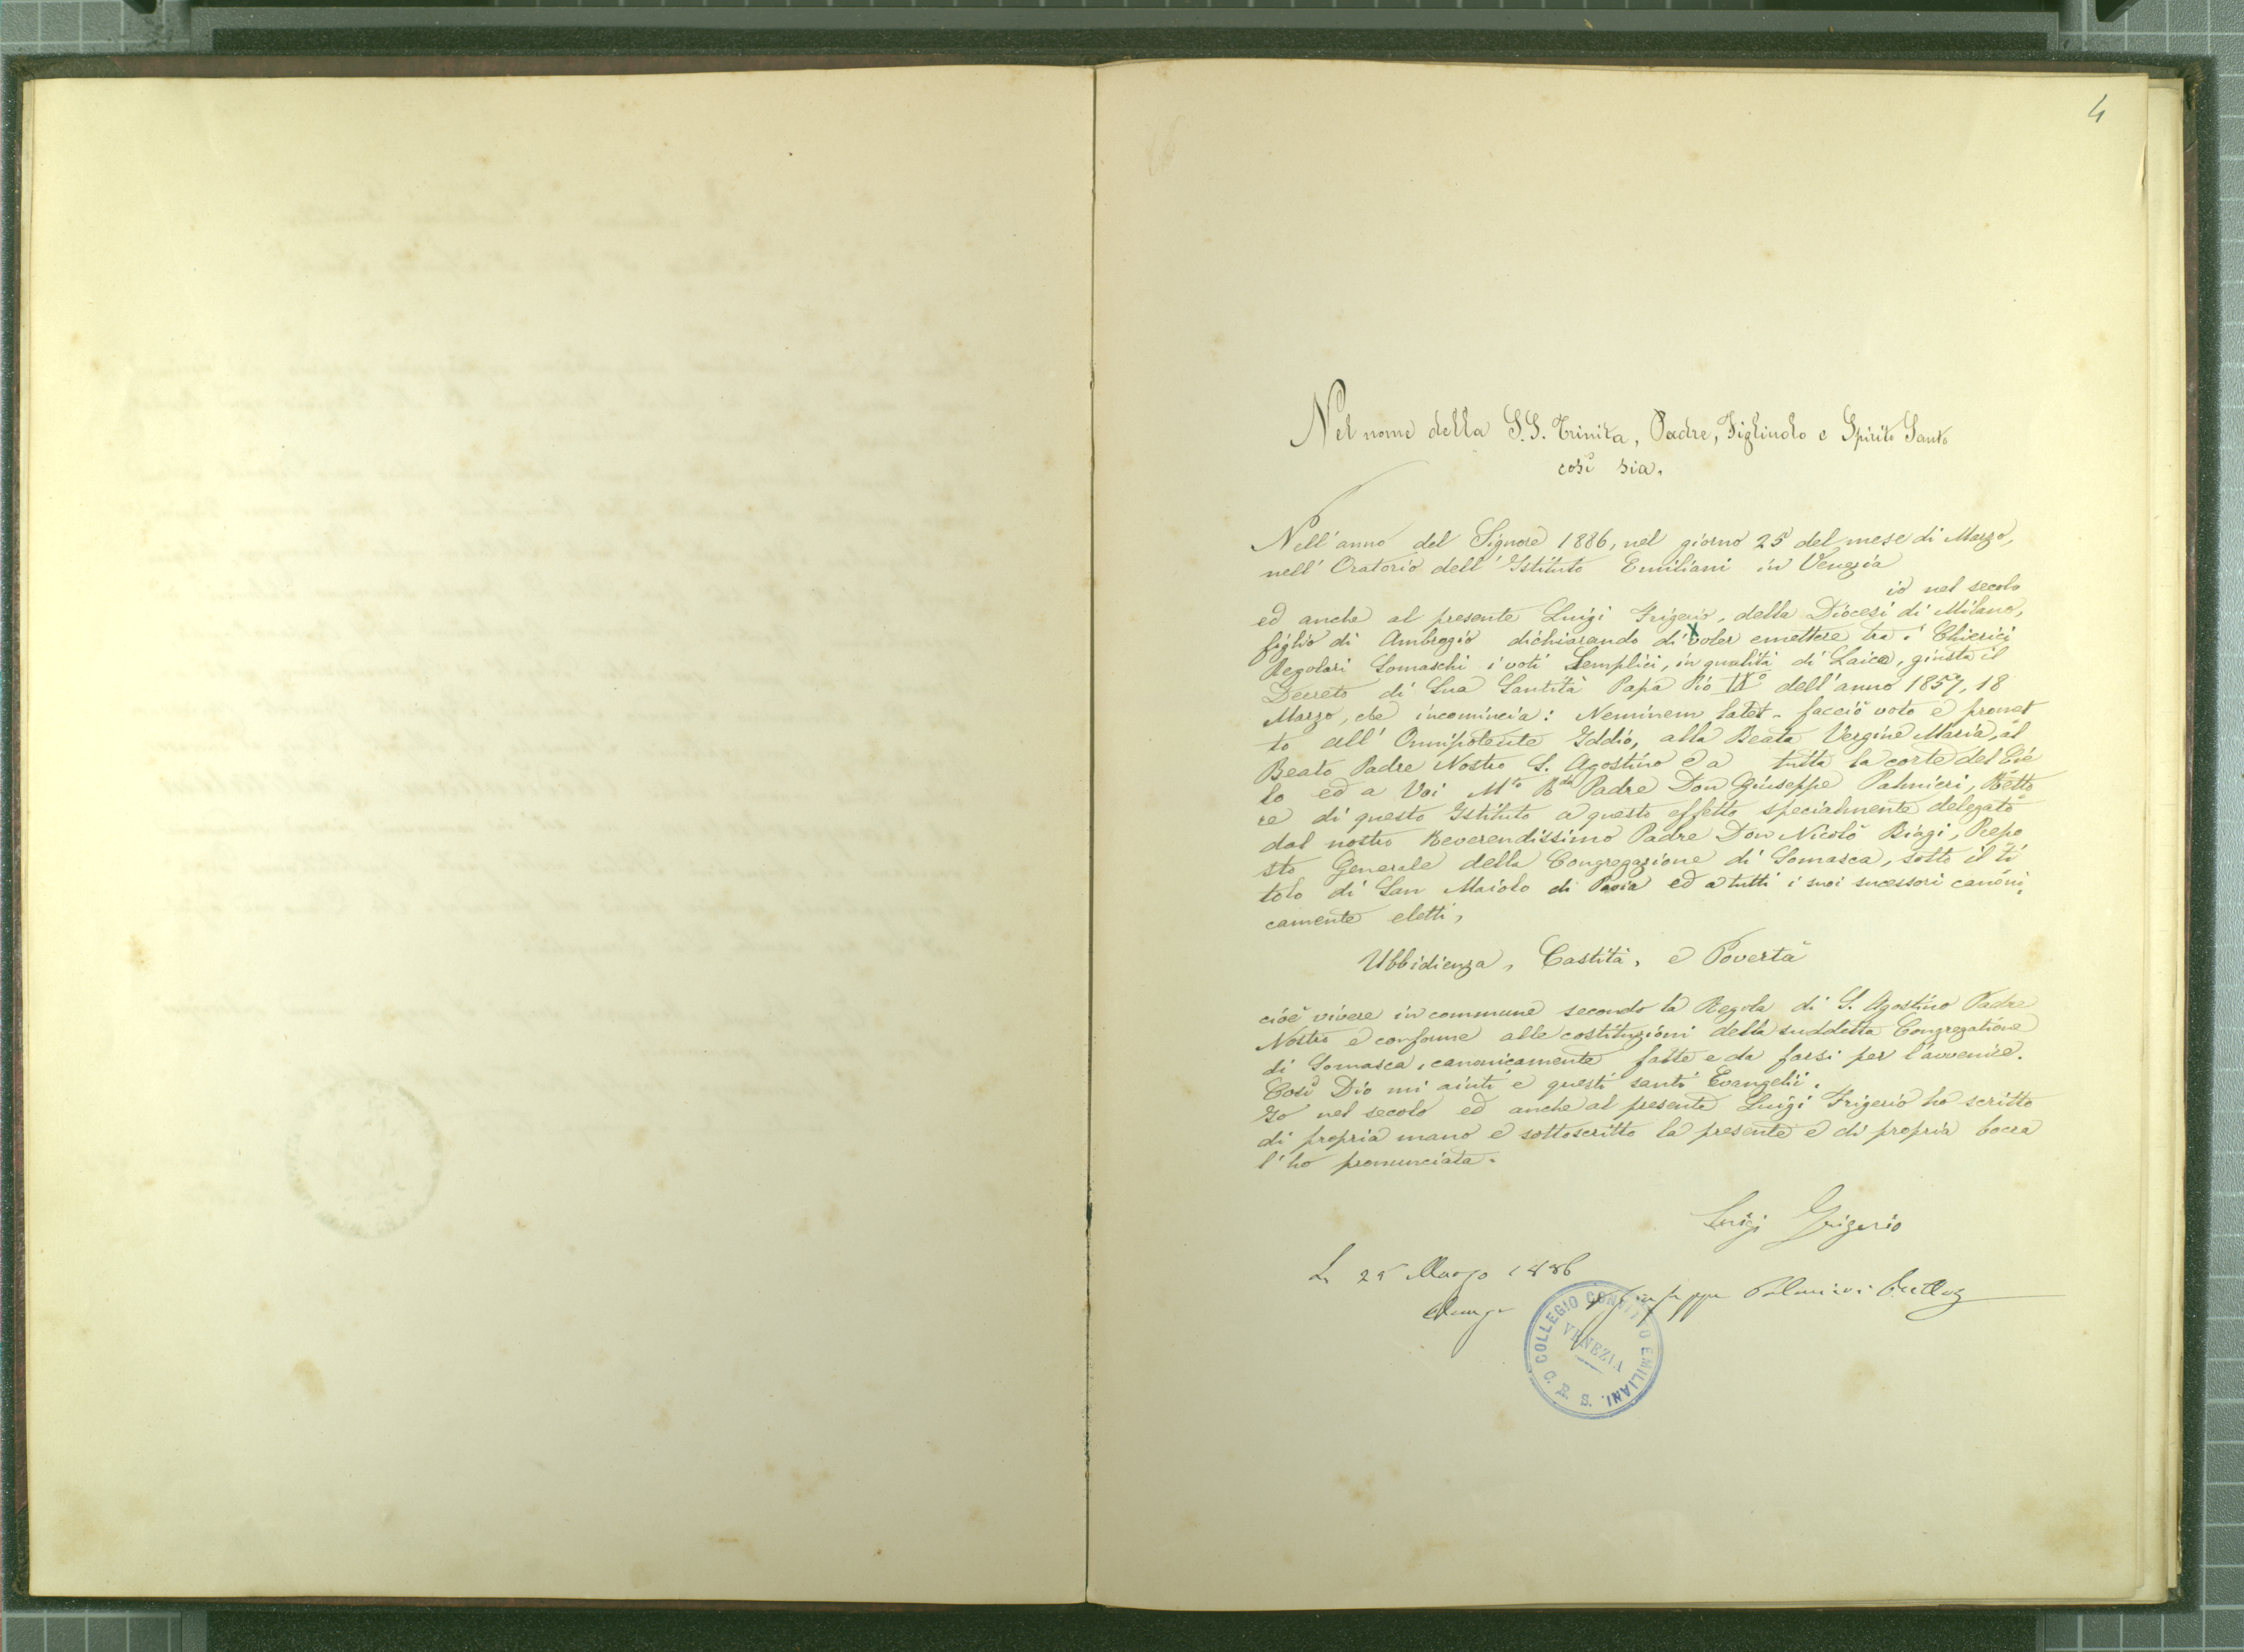 4
Nel nome della S.S. Trinita, Padre, Figliuolo e Spirito Santo
così sia.
Nell'anno del Signore 1886, nel giorno 25 del mese di Marzo,
nell' Oratorio dell' Istituto Emiliani in Venezia
io nel secolo
ed anche al presente Luigi Frigerio, della Diocesi di Milano,
figlio di Ambrogio dichiarando di voler emettere tra i Chierici
Regolari Somaschi i voti Semplici, in qualità di Laico, giusta il
Decreto di Sua Santità Papa Pio IX° dell'anno 1857, 18
Marzo, che incomincia: Neminem latet - facciò voto e promet
to all' Omnipotente Iddio, alla Beata Vergine Maria, al
Beato Padre Nostro S. Agostino e a tutta la corte del Cie
lo ed a Voi M.to R.do Padre Don Giuseppe Palmieri, Retto
re di questo Istituto a questo effetto specialmente delegato
dal nostro Reverendissimo Padre Don Nicolò Biagi, Prepo
sto Generale della Congregazione di Somasca, sotto il ti
tolo di San Maiolo di Pavia ed a tutti i suoi sucessori canoni
camente eletti,
Ubbidienza, Castità, e Povertà
cioè vivere in commune secondo la Regola di S. Agostino Padre
Nostro e conforme alle costituzioni della suddetta Congregatione
di Somasca, canonicamente fatte e da farsi per l'avvenire.
Così Dio mi aiuti e questi santi Evangelii.
Io nel secolo ed anche al presente Luigi Frigerio ho scritto
di propria mano e sottoscritto la presente e di propria bocca
l'ho pronunciata.
Luigi Frigerio
Li 25 Marzo 1886
Giuseppe Palmieri Rettor
COLLEGIO CONVITTO EMILIANI. C. R. S.
VENEZIA